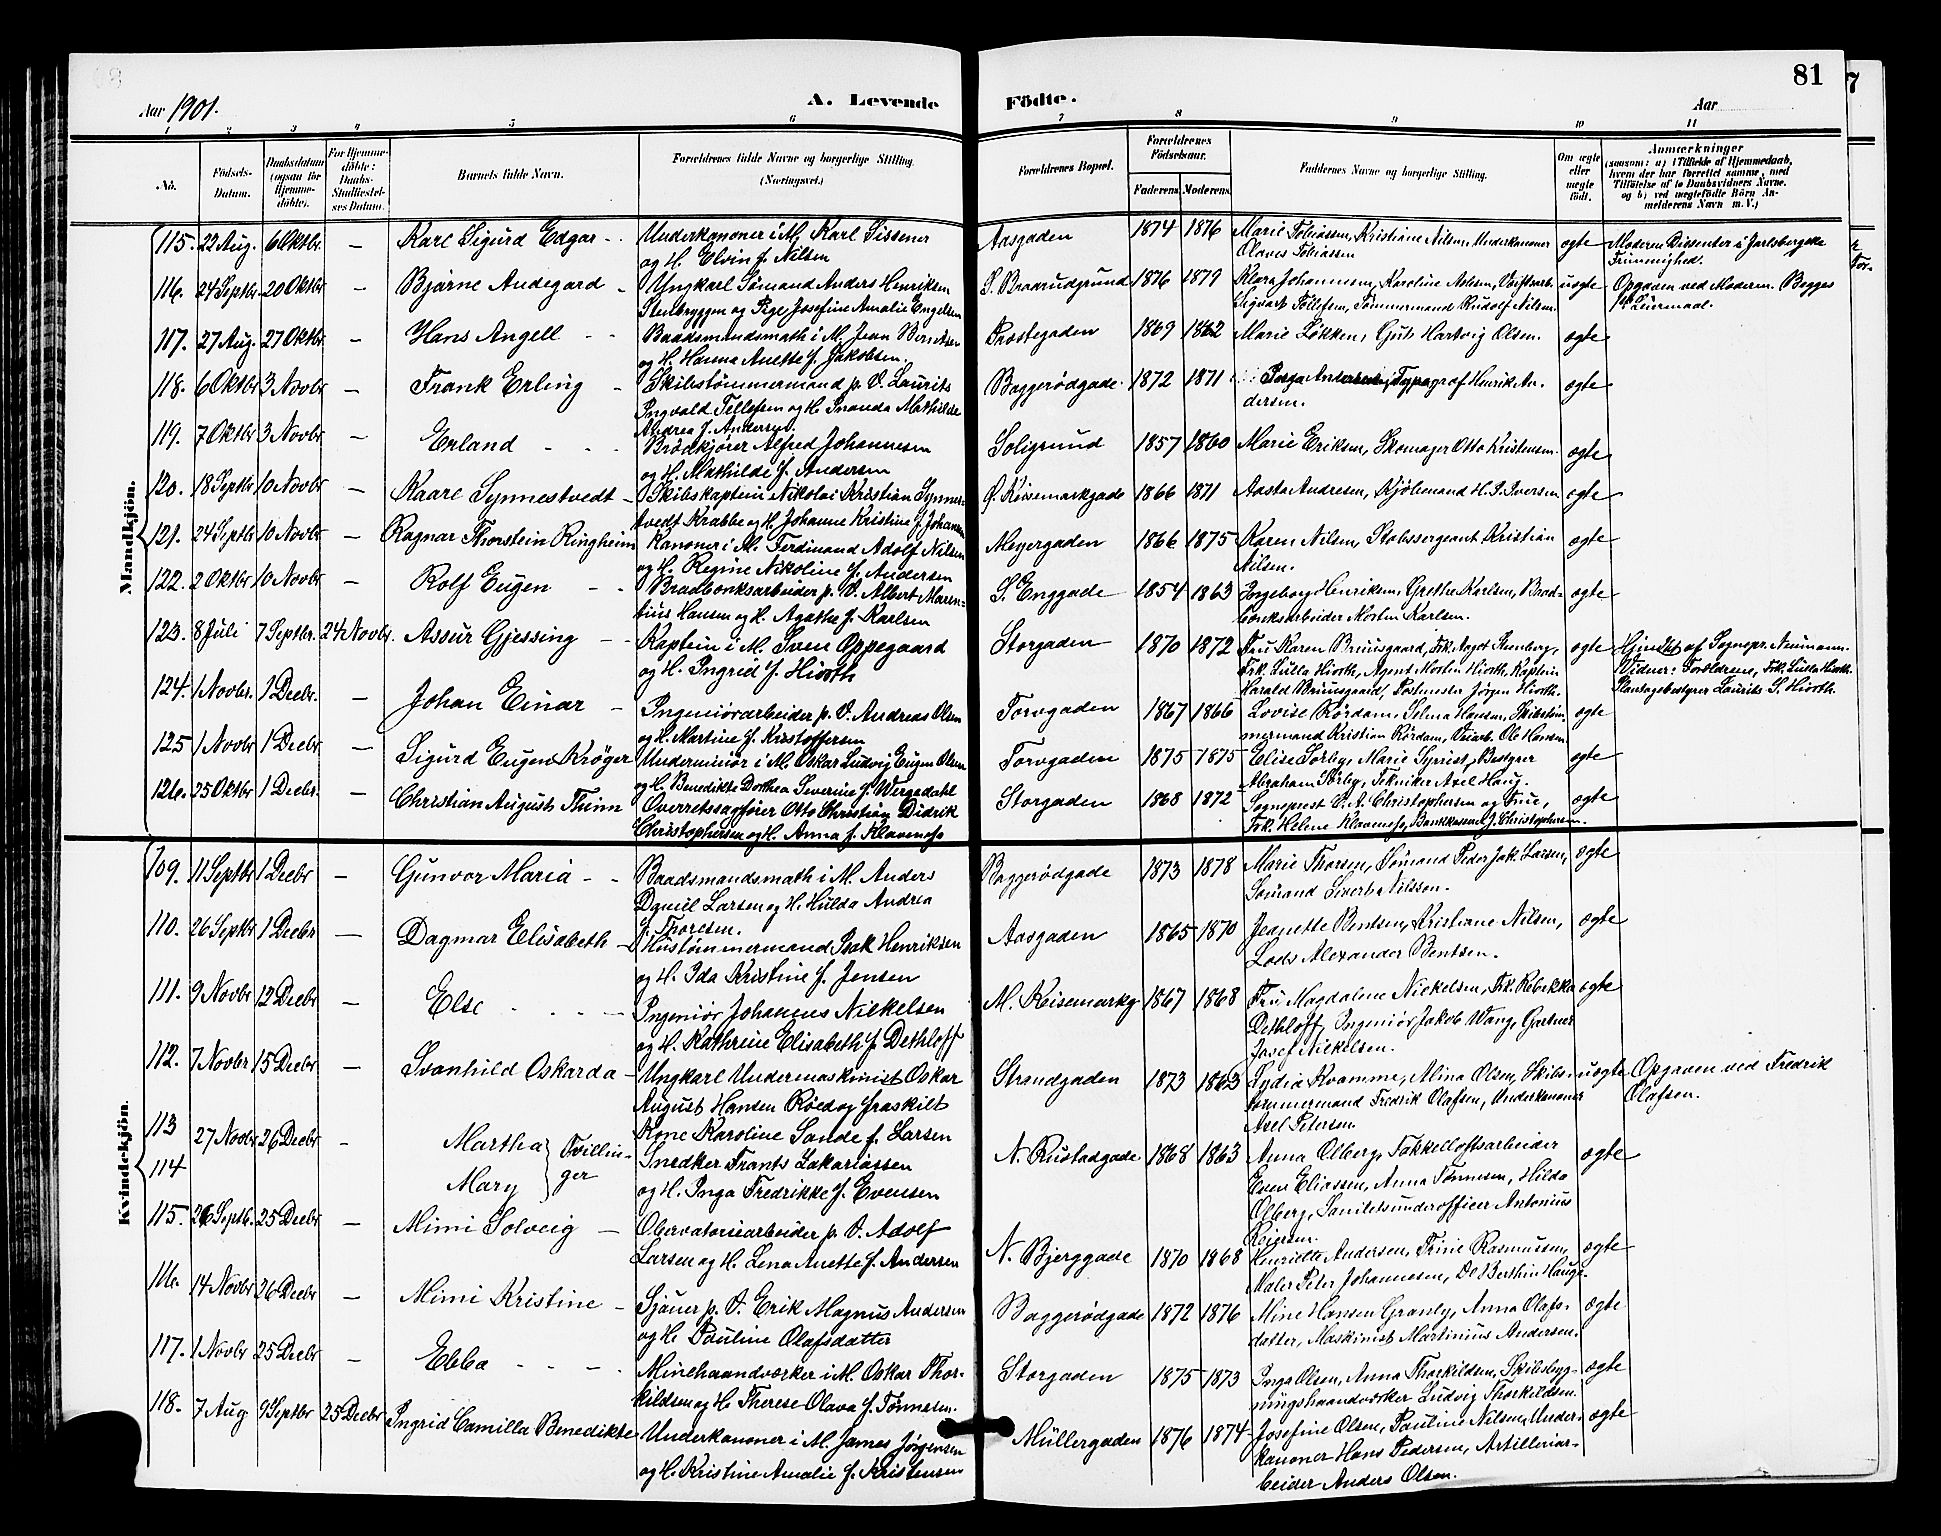 81
Aar 1901. A. Levende Födte. Aar
1 2 3 4 5 6 7 8 9 10 11
No. Födsels-Datum. Daabsdatum (ogsaa for Hjemme-döbte). For Hjemme-döbte: Daabs-Stadfæstelses Datum. Barnets fulde Navn. Forældrenes fulde Navne og borgerlige Stilling. (Næringsvei.) Forældrenes Bopæl. Forældrenes Födselsaar. Faderens. Moderens. Faddernes Navne og borgerlige Stilling. Om ægte eller uægte födt. Anmærkninger (saasom: a) i Tilfælde af Hjemmedaab, hvem der har forrettet samme, med Tilföielse af to Daabsvidners Navne, og b) ved uægtefödte Börn Anmelderens Navn m. V.)
Mandkjön.
115. 22 Aug. 6 Oktbr. — Karl Sigurd Edgar Underkanoner i M. Karl Sissener og H. Elvin f. Nilsen Aasgaden 1874 1876 Marie Tobiassen, Kristiane Nilsen, Underkanoner Olaves Tobiassen ægte Moderen Dissenter i Jarlsbergske Frimenighed.
116. 24 Septbr. 20 Oktbr — Bjarne Andegard Ungkarl Sømand Anders Henriksen Stenbryggen og Pige Josefine Amalie Engelsen S. Braarudgrund 1876 1879 Klara Johannesen, Karoline Nilsen, Værftsarb. Sigvart Tollefsen, Tømmermand Rudolf Nilsen uægte Opgaven ved Moderen. Begges 1ste Leiermaal.
117. 27 Aug. 27 Oktbr — Hans Angell Baadsmandsmath i M. Jean Berntsen og H. Hanna Anette f. Jakobsen. Præstegaden 1869 1862 Marie Løkken, Gjüts Hartvig Olsen. ægte
118. 6 Oktbr 3 Novbr — Frank Erling Skibstømmermand p. V. Laurits Ingvald Tellefsen og H. Inanda Mathilde Andrea f. Andersen. Baggerödgade 1872 1871 Andersen, Typograf Henrik Andersen. ægte
119. 7 Oktbr 3 Novbr — Erland Brødkjører Alfred Johannesen og H. Mathilde f. Andersen Soligrund 1857 1860 Marie Eriksen, Skomager Otto Kristensen ægte
120. 18 Septbr 10 Novbr — Kaare Synnestvedt Skibskaptein Nikolai Kristian Synnestvedt Krabbe og H. Johanne Kristine f. Johansen Ø. Keisemarkgade 1866 1871 Aasta Andresen, Kjøbmand H. P. Iversen ægte
121. 24 Septbr 10 Novbr — Ragnar Thorstein Ringheim Kanoner i M. Ferdinand Adolf Nilsen og H. Regine Nikoline f. Andersen Meyergaden 1866 1875 Karen Nilsen, Stabssergeant Kristian Nilsen. ægte
122. 2 Oktbr 10 Novbr — Rolf Eugen Bradbænksarbeider p. V. Albert Marentius Hansen og H. Agathe f. Karlsen S. Enggade 1854 1863 Ingeborg Henriksen, Grethe Karlsen, Bradbænksarbeider Morten Karlsen. ægte
123. 8 Juli 7 Septbr. 24 Novbr. Assur Gjessing Kaptein i M. Sven Oppegaard og H. Ingrid f. Hiorth Storgaden 1870 1872 Fru Karen Bruusgaard, Frk. Aagot Kumberg, Frk. Lulla Hiorth, Agent Morten Hiorth, Kaptein Harald Bruusgaard, Postmester Jørgen Hiorth. ægte Hjmdbt af Sognepr. Neumann. Vidner: Forældrene, Frk. Lulla Hiorth. Plantagebestyrer Laurits S. Hiorth.
124. 1 Novbr. 1 Decbr. — Johan Einar Ingeniørarbeider p. V. Andreas Olsen og H. Martine f. Kristoffersen Torvgaden 1867 1866 Lovise Rørdam, Selma Hansen, Skibstømmermand Kristian Rørdam, Veiarb. Ole Hansen ægte
125 1 Novbr 1 Decbr — Sigurd Eugen Krøger Underminör i M. Oskar Ludvig Eugen Olsen og H. Benedikte Dorthea Severine f. Wergedahl Torvgaden 1875 1875 Elise Sørby, Marie Syrist, Bestyrer Abraham Sørby, Tekniker Axel Haug. ægte
126. 25 Oktbr 1 Decbr. — Christian August Thinn Overretssagfører Otto Christian Didrik Christophersen og H. Anna f. Klaveness Storgaden 1868 1872 Sogneprest V. A. Christophersen og Frue, Frk. Helene Klaveness, Bankkasserer J. Christophersen. ægte
Kvindekjön.
109. 11 Septbr 1 Decbr — Gunvor Maria Baadsmandsmath i M. Anders Daniel Larsen og H. Hulda Andrea f. Thoresen. Baggerödgade 1873 1878 Marie Thorsen, Sømand Peder Jak. Larsen, Sømand Sivert Nilssen. ægte
110. 26 Septbr 1 Decbr — Dagmar Elisabeth Hustømmermand Isak Henriksen og H. Ida Kristine f. Jensen Aasgaden 1865 1870 Jeanette Bentsen, Kristiane Nilsen, Lods Alexander Bentsen. ægte
111. 9 Novbr 12 Decbr — Else Ingeniør Johannes Nickelsen og H. Kathrine Elisabeth f. Dethloff M. Keisemarkg 1867 1868 Fru Magdalene Nickelsen, Frk. Rebekka Dethloff, Ingeniør Jakob Wang, Gartner Josef Nickelsen. ægte
112. 7 Novbr 15 Decbr — Svanhild Oskarda Ungkarl Undermaskinist Oskar August Hansen Røed og fraskilt Kone Karoline Sande f. Larsen Strandgaden 1873 1863 Lydia Kvamme, Alina Olsen, Skibstømmermand Fredrik Olafsen, Underkanoner Axel Petersen. uægte Opgaven ved Fredrik Olafsen.
113 114 27 Novbr 26 Decbr — Martha Mary } Tvillinger Snedker Frants Zakariassen og H. Inga Fredrikke f. Evensen N. Rustadgade 1868 1863 Anna Olberg, Takkelloftsarbeider Even Eliassen, Anna Tønnesen, Hilda Olberg, Sanitetsunderofficer Antonius Reiersen. ægte
115. 26 Septb. 25 Decbr — Mimi Solveig Observatoriearbeider p. V. Adolf Larsen og H. Lena Anette f. Andersen N. Bjerggade 1870 1868 Henriette Andersen, Trine Rasmussen, Maler Peter Johannesen, Do Berthin Hauge. ægte
116. 14 Novbr 26 Decbr — Mimi Kristine Sjöuer p. V. Erik Magnus Andersen og H. Pauline Olafsdatter Baggerödgade 1872 1876 Mine Hansen Granly, Anna Olafsdatter, Maskinist Martinius Andersen. ægte
117. 1 Novbr 25 Decbr — Ebba Minehaandværker i M. Oskar Thorkildsen og H. Therese Olava f. Tönnesen. Storgaden 1875 1873 Inga Olsen, Anna Thorkildsen, Skibsbygningshaandværker Ludvig Thorkildsen. ægte
118. 7 Aug 9 Septbr 25 Decbr Ingrid Camilla Benedikte Underkanoner i M. James Jørgensen og H. Kristine Amalie f. Kristensen Müllergaden 1876 1874 Josefine Olsen, Pauline Nilsen, Underkanoner Hans Pedersen, Artilleriarbeider Anders Olsen. ægte